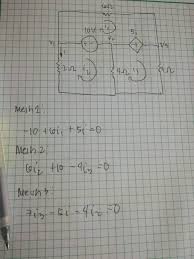 6Ω
10V
5i
V1
V2
V3
i
2Ω
4Ω
i2
i3
Mesh 1:
-10 + 6i1 + 5i = 0
Mesh 2
6i2 + 10 - 4i3 = 0
Mesh 3
7i3 - 5i - 4i2 = 0